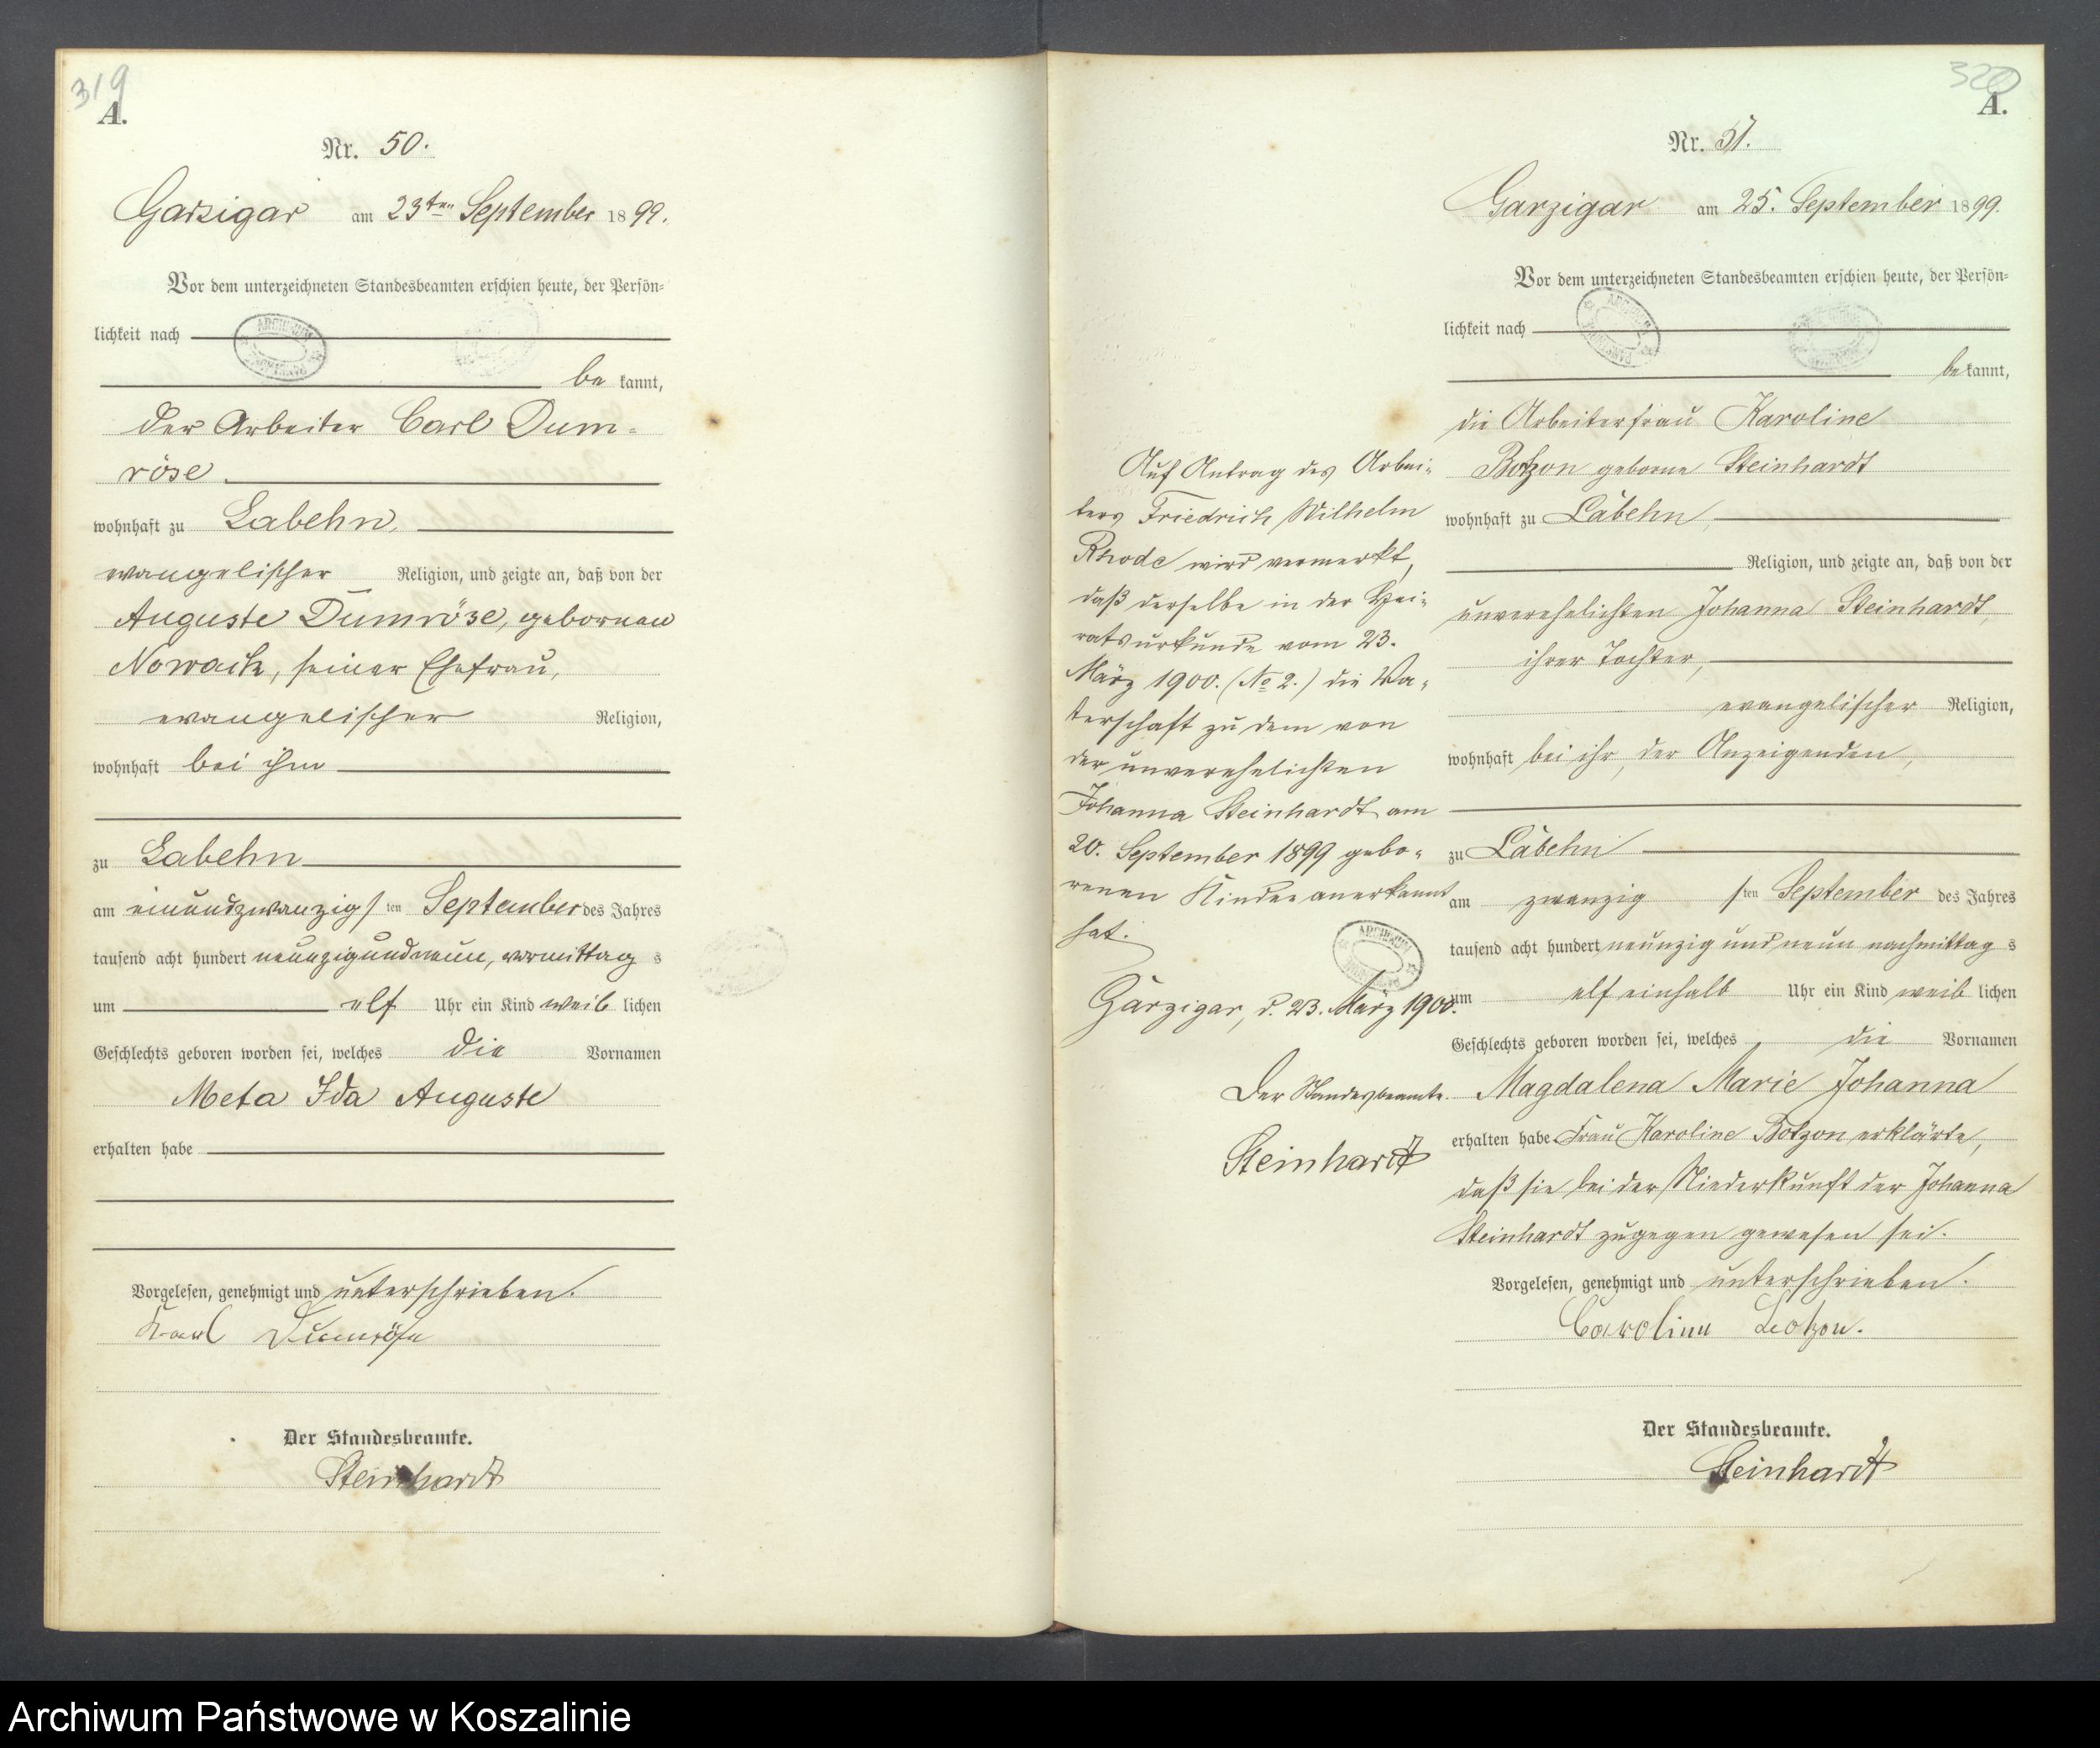 319
A.
Nr. 50.
Garzigar am 23ten September 1899.
Vor dem unterzeichneten Standesbeamten erschien heute, der Persön-
lichkeit nach
be kannt,
der Arbeiter Carl Dum-
röse
wohnhaft zu Labehn,
evangelischer Religion, und zeigte an, daß von der
Auguste Dumröse, gebornen
Nowack, seiner Ehefrau,
evangelischer Religion,
wohnhaft bei ihm
zu Labehn
am einundzwanzigsten September des Jahres
tausend acht hundert neunzigundneun, vormittag s
um elf Uhr ein Kind weib lichen
Geschlechts geboren worden sei, welches die Vornamen
Meta Ida Auguste
erhalten habe
Vorgelesen, genehmigt und unterschrieben.
Karl Dumröse
Der Standesbeamte.
Steinhardt
320
A.
Nr. 51.
Garzigar am 25. September 1899.
Vor dem unterzeichneten Standesbeamten erschien heute, der Persön-
lichkeit nach
be kannt,
die Arbeiterfrau Karoline
Botzon geborne Steinhardt
wohnhaft zu Labehn,
Religion, und zeigte an, daß von der
unverehelichten Johanna Steinhardt,
ihrer Tochter,
evangelischer Religion,
wohnhaft bei ihr, der Anzeigenden,
zu Labehn
am zwanzig sten September des Jahres
tausend acht hundert neunzig und neun nachmittag s
um elf einhalb Uhr ein Kind weib lichen
Geschlechts geboren worden sei, welches die Vornamen
Magdalena Marie Johanna
erhalten habe Frau Karoline Botzon erklärte,
daß sie bei der Niederkunft der Johanna
Steinhardt zugegen gewesen sei.
Vorgelesen, genehmigt und unterschrieben.
Caroline Botzon.
Der Standesbeamte.
Steinhardt
Auf Antrag des Arbei-
ters Friedrich Wilhelm
Rhode wird vermerkt,
daß derselbe in der Hei-
ratsurkunde vom 23.
März 1900. (No 2.) die Va-
terschaft zu dem von
der unverehelichten
Johanna Steinhardt am
20. September 1899 gebo-
renen Kinde anerkannt
hat.
Garzigar, d. 23. März 1900.
Der Standesbeamte.
Steinhardt
Archiwum Państwowe w Koszalinie